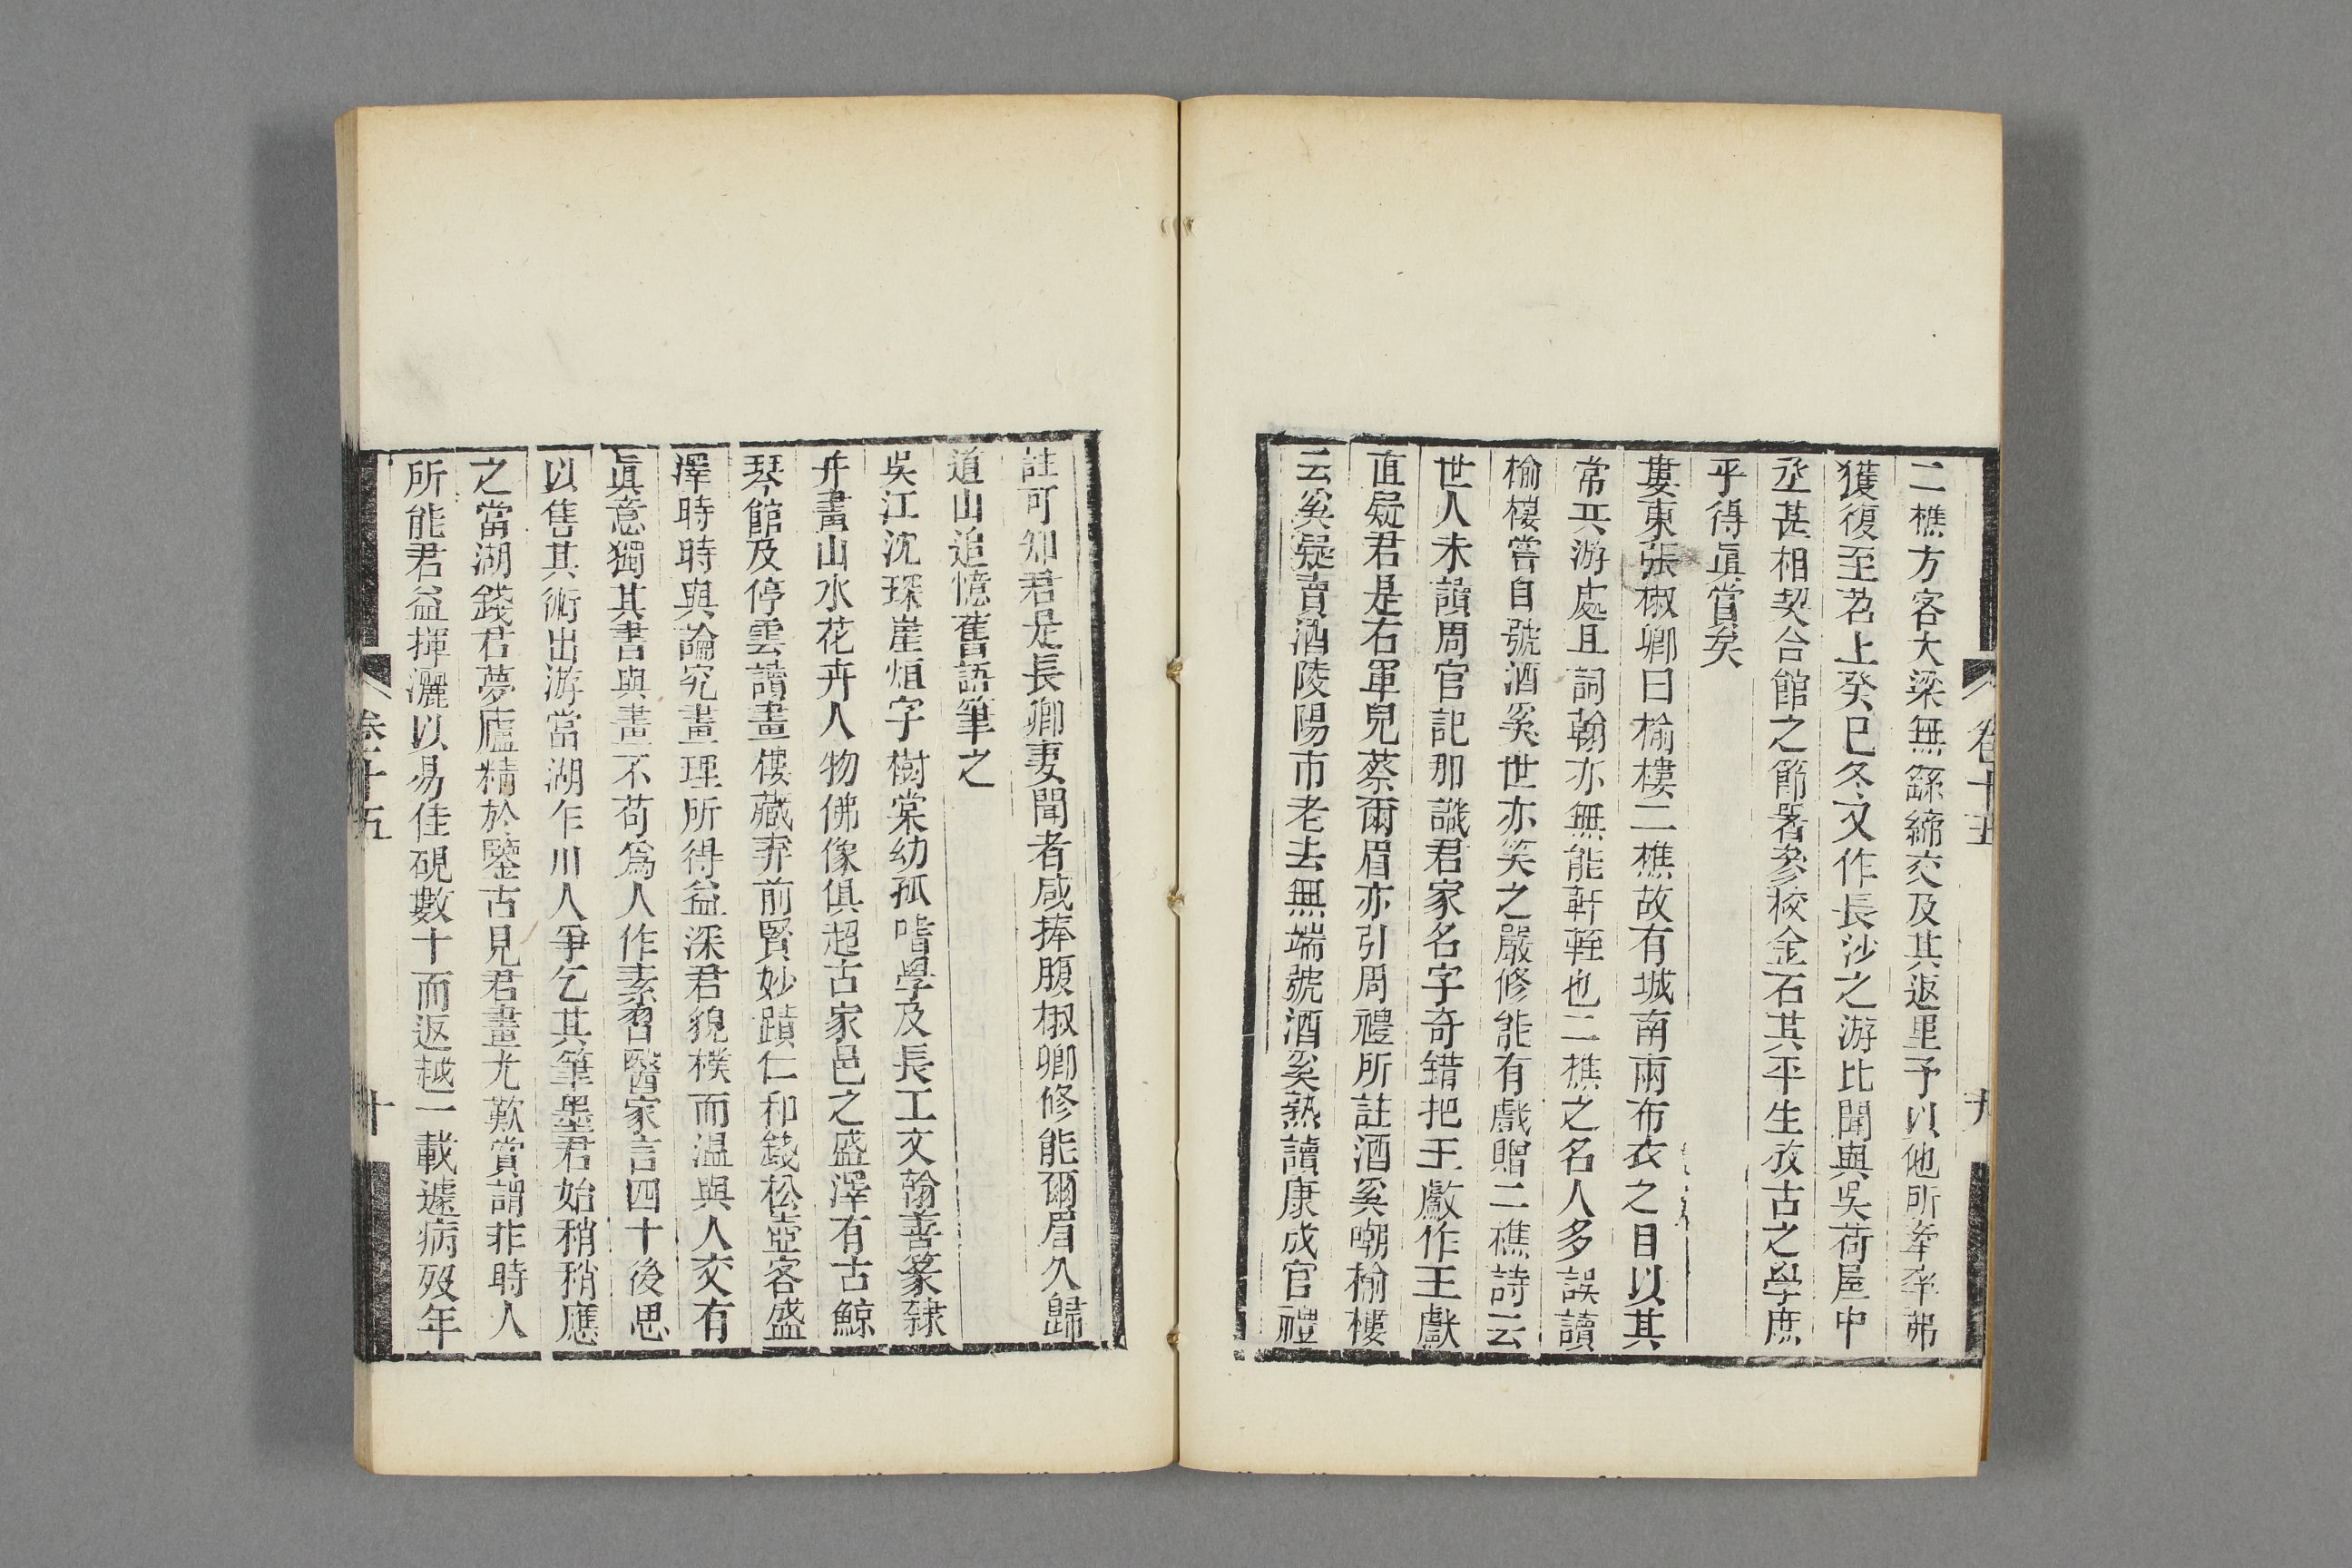 卷十五
九
二樵方客大梁無繇締交及其返里予以他所牽率弗
獲復至茗上癸巳冬又作長沙之游比聞與吳荷屋中
丞甚相契合館之節署參校金石其平生攷古之學庶
乎得眞賞矣
婁東張椒卿曰榆樓二樵故有城南兩布衣之目以其
常共游處且詞翰亦無能軒輊也二樵之名人多誤讀
榆樓嘗自號酒奚世亦笑之嚴修能有戲贈二樵詩云
世人未讀周官記那識君家名字奇錯把王䱷作王獻
直疑君是右軍兒蔡爾眉亦引周禮所註酒奚嘲榆樓
云奚疑賣酒陵陽市老去無端號酒奚熟讀康成官禮
註可知君是長卿妻聞者咸捧腹椒卿修能爾眉久歸
道山追憶舊語筆之
吳江沈琛崖烜字樹棠幼孤嗜學及長工文翰善篆隸
幷畫山水花卉人物佛像俱超古家邑之盛澤有古鯨
琴館及停雲讀畫樓藏弆前賢妙蹟仁和錢松壺客盛
澤時時與論究畫理所得益深君貌樸而溫與人交有
眞意獨其書與畫不苟爲人作素習醫家言四十後思
以售其術出游當湖乍川人爭乞其筆墨君始稍稍應
之當湖錢君夢廬精於鑒古見君畫尤歎賞謂非時人
所能君益揮灑以易佳硯數十而返越一載遽病歿年
卷十五
十